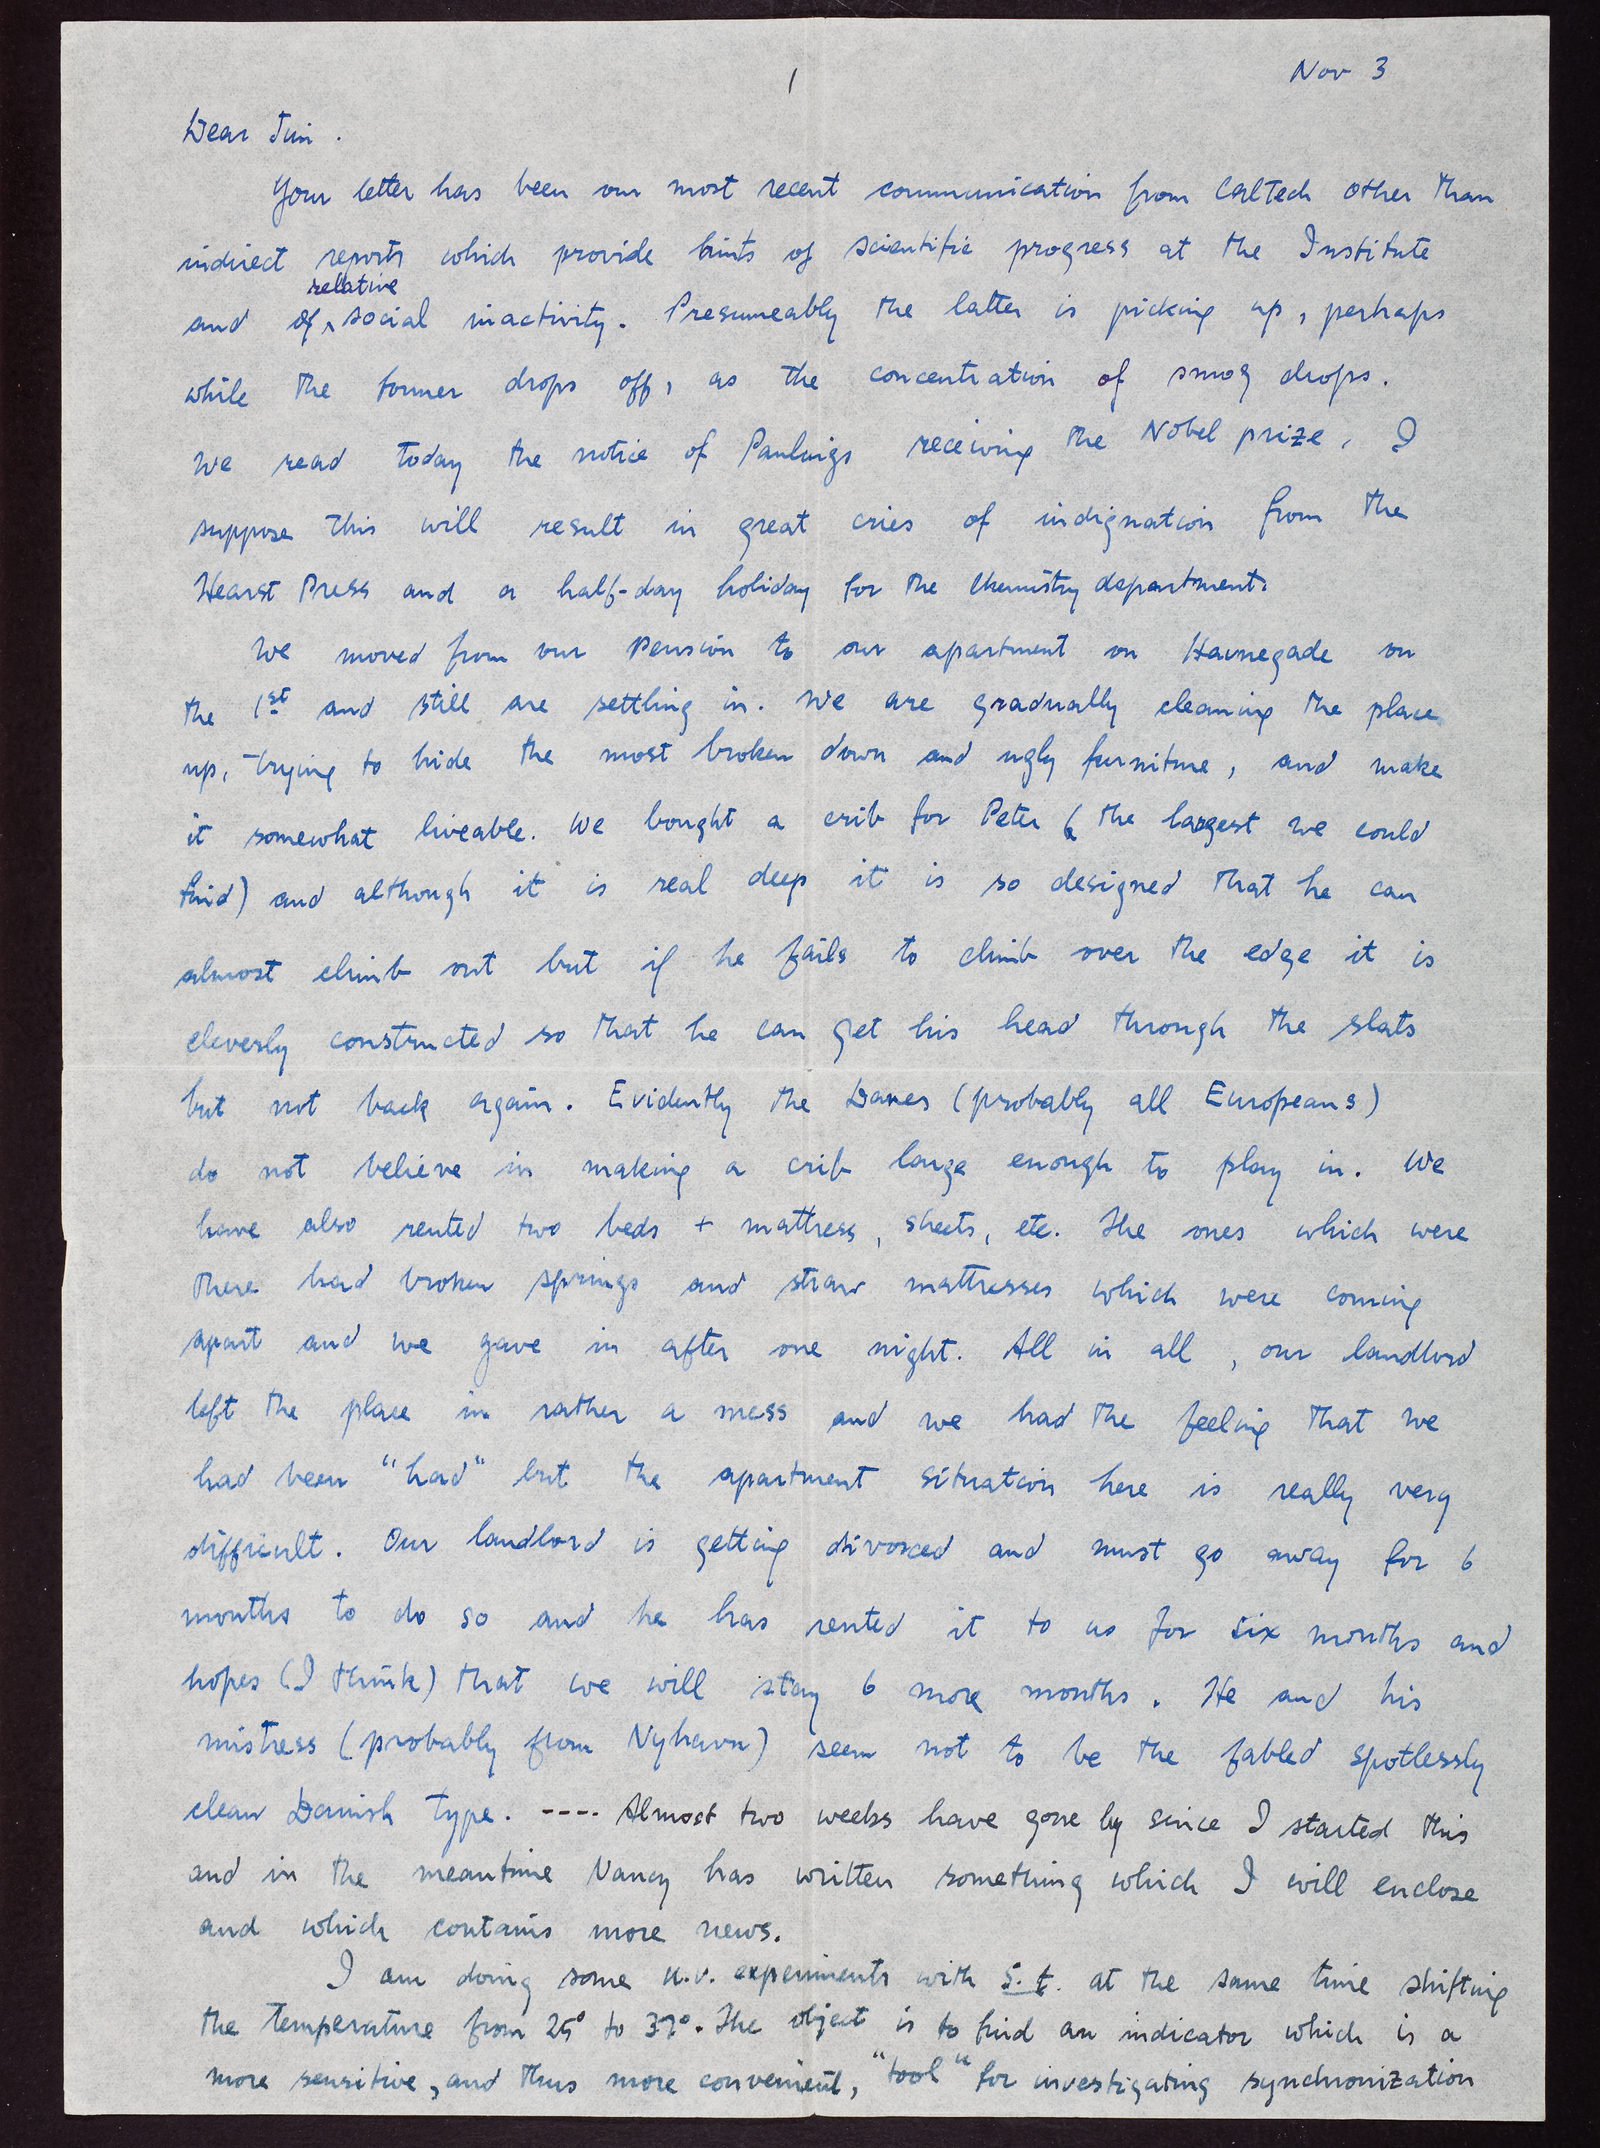 1
Nov 3
Dear Jim.
Your letter has been our most recent communication from CalTech other than
indirect reports which provide hints of scientific progress at the Institute
relative
and of social inactivity. Presumeably the latter is picking up, perhaps
while the former drops off, as the concentration of smog drops.
We read today the notice of Paulings receiving the Nobel prize. I
suppose this will result in great cries of indignation from the
Hearst Press and a half-day holiday for the Chemistry department.
We moved from our Pension to our apartment on Havnegade on
the 1st and still are settling in. We are gradually cleaning the place
up, trying to hide the most broken down and ugly furniture, and make
it somewhat liveable. We bought a crib for Peter (the largest we could
find) and although it is real deep it is so designed that he can
almost climb out but if he fails to climb over the edge it is
cleverly constructed so that he can get his head through the slats
but not back again. Evidently the Danes (probably all Europeans)
do not believe in making a crib large enough to play in. We
have also rented two beds + mattress, sheets, etc. The ones which were
there had broken springs and straw mattresses which were coming
apart and we gave in after one night. All in all, our landlord
left the place in rather a mess and we had the feeling that we
had been "had" but the apartment situation here is really very
difficult. Our landlord is getting divorced and must go away for 6
months to do so and he has rented it to us for six months and
hopes (I think) that we will stay 6 more months. He and his
mistress (probably from Nyhavn) seem not to be the fabled spotlessly
clean Danish type. ---- Almost two weeks have gone by since I started this
and in the meantime Nancy has written something which I will enclose
and which contains more news.
I am doing some u.v. experiments with S. t. at the same time shifting
the temperature from 25° to 37°. The object is to find an indicator which is a
more sensitive, and thus more convenient, "tool" for investigating synchronization